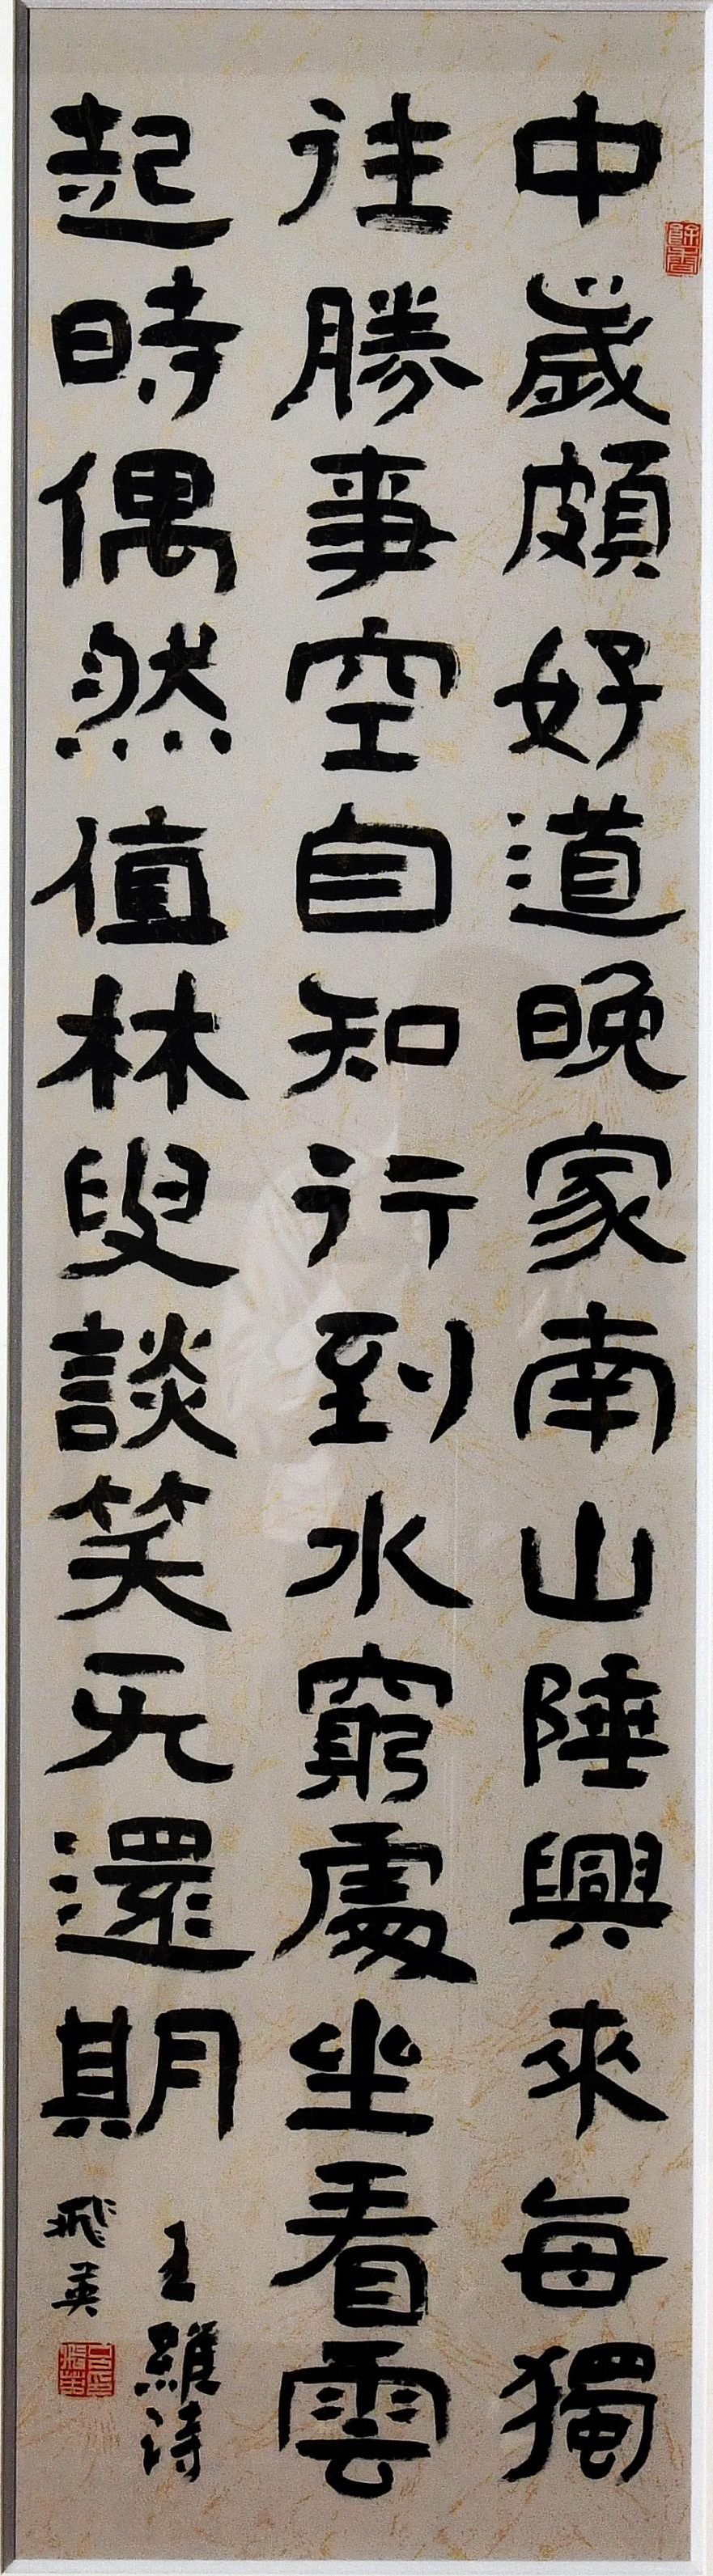 中歲頗好道晚家南山陲興來每獨
往勝事空自知行到水窮處坐看雲
起時偶然值林叟談笑无還期
王維詩
飛英